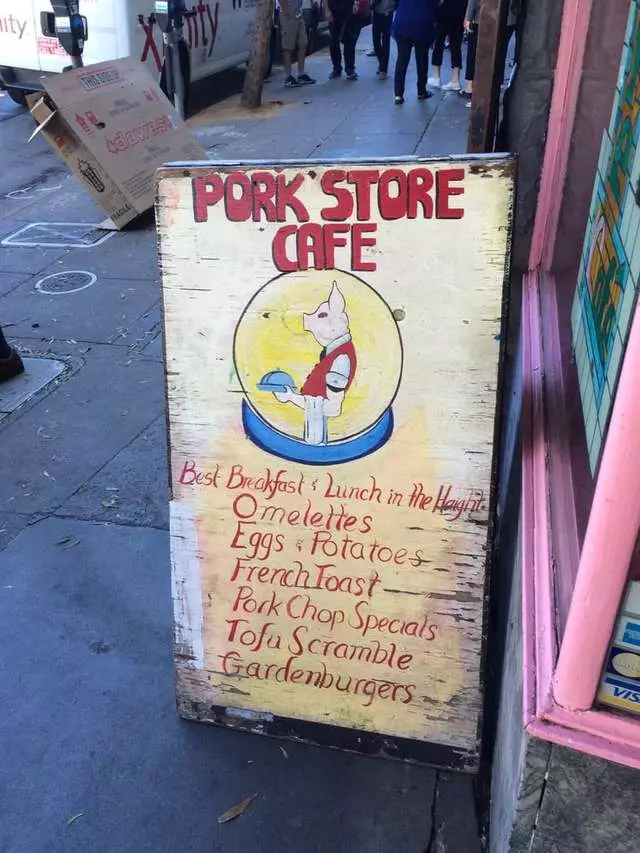 ity
xfinity
THIS SIDE UP
dawes
FRAGILE
PORK STORE
CAFE
Best Breakfast & Lunch in the Haight
Omelettes
Eggs & Potatoes
French Toast
Pork Chop Specials
Tofu Scramble
Gardenburgers
VIS